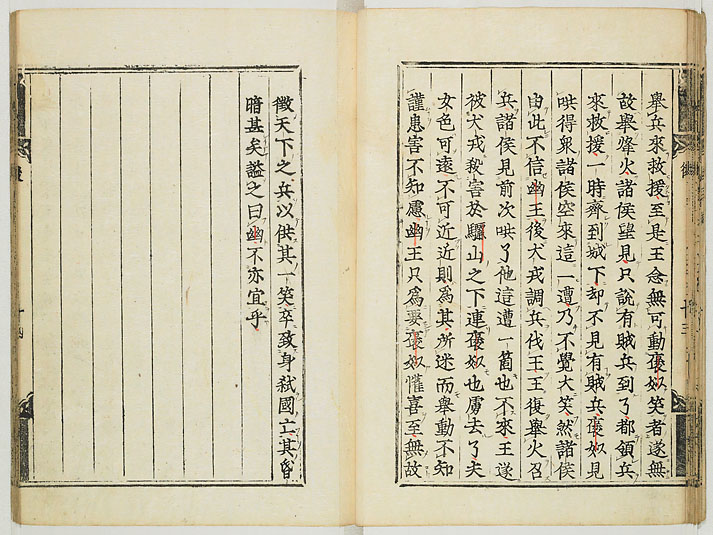 舉兵來救援至是王念無可動褒姒笑者遂無
故舉烽火諸侯望見只說有賊兵到了都領兵
來救援一時齊到城下却不見有賊兵褒姒見
哄得衆諸侯空來這一遭乃不覺大笑然諸侯
由此不信幽王後犬戎調兵伐王王復舉火召
兵諸侯見前次哄了他這遭一箇也不來王遂
被犬戎殺害於驪山之下連褒姒也虜去了夫
女色可遠不可近近則爲其所迷而舉動不知
謹患害不知慮幽王只爲要褒姒懽喜至無故
徵天下之兵以供其一笑卒致身弑國亡其昏
暗甚矣謚之曰幽不亦宜乎